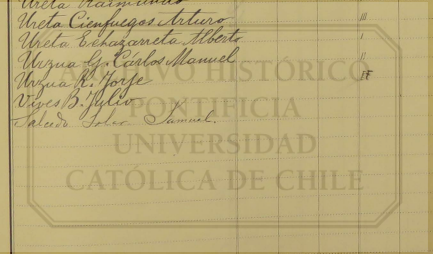 Ureta Raimundo
Ureta Cienfuegos Arturo III
Ureta Echazarreta Alberto I
Urzua G. Carlos Manuel II
Urzua R. Jorje
Vives B. Julio
Salcedo Soler Samuel.
ARCHIVO HISTÓRICO
PONTIFICIA
UNIVERSIDAD
CATÓLICA DE CHILE